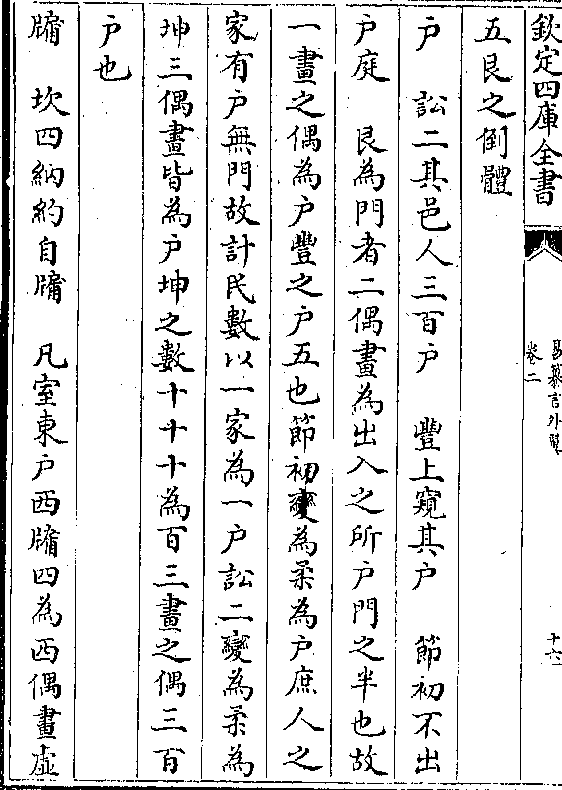 欽定四庫全書
易纂言外翼
卷二
十六
五艮之倒體
户　訟二其邑人三百户　豐上窺其户　節初不出
户庭　艮為門者二偶畫為出入之所户門之半也故
一畫之偶為户豐之户五也節初變為柔為户庶人之
家有户無門故計民數以一家為一户訟二變為柔為
坤三偶畫皆為户坤之數十十十為百三畫之偶三百
户也
牖　坎四納約自牖　凡室東户西牖四為西偶畫虛